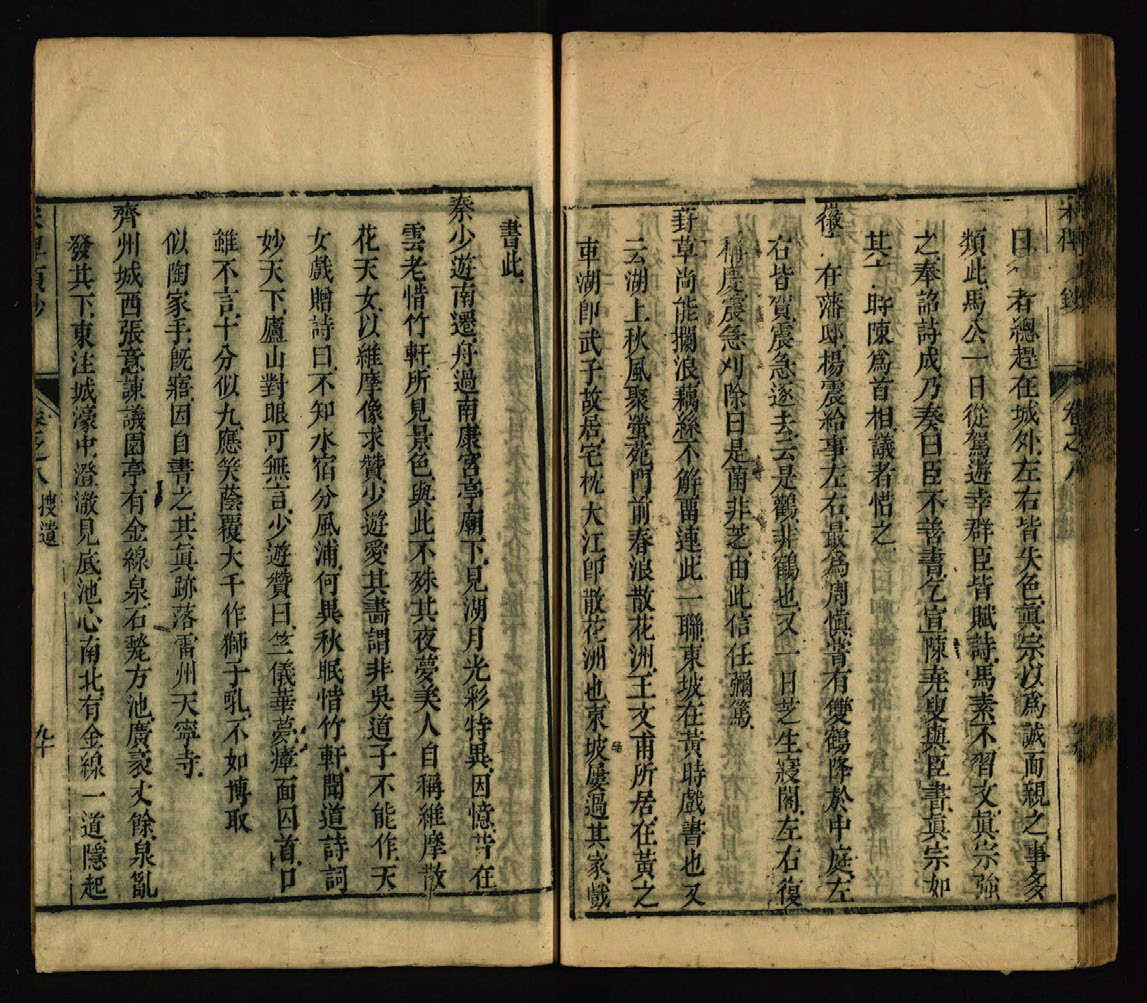 宋稗類鈔
卷之八
曰　者總趕在城外左右皆失色眞宗以爲誠而親之事多
類此馬公一日從駕遊幸群臣皆賦詩馬素不習文眞宗強
之奉詔詩成乃奏曰臣不善書乞宣陳堯叟與臣書眞宗如
其　時陳爲首相議者惜之
徽　在藩邸楊震給事左右最爲周慎嘗有雙鶴降於中庭左
右皆賀震急逐去云是鸛非鶴也又一日芝生寢閣左右復
稱慶震急刈除曰是菌非芝由此信任彌篤
葑草尚能攔浪藕絲不解畱連此一聯東坡在黃時戲書也又
云湖上秋風聚螢苑門前春浪散花洲王文甫所居在黃之
車湖卽武子故居宅枕大江卽散花洲也東坡屢過其家戲
書此
秦少遊南遷舟過南康宮亭廟下見湖月光彩特異因憶昔在
雲老惜竹軒所見景色與此不殊其夜夢美人自稱維摩散
花天女以維摩像求贊少遊愛其畫謂非吳道子不能作天
女戲贈詩曰不知水宿分風浦何異秋眠惜竹軒聞道詩詞
妙天下廬山對眼可無言少遊贊曰竺儀華夢瘴面囚首口
雖不言十分似九應笑蔭覆大千作獅子吼不如博取
似陶家手旣寤因自書之其眞跡落雷州天寧寺
齊州城西張意諫議園亭有金線泉石甃方池廣袤丈餘泉亂
發其下東注城濠中澄澈見底池心南北有金線一道隱起
卷之八
搜遺
九十